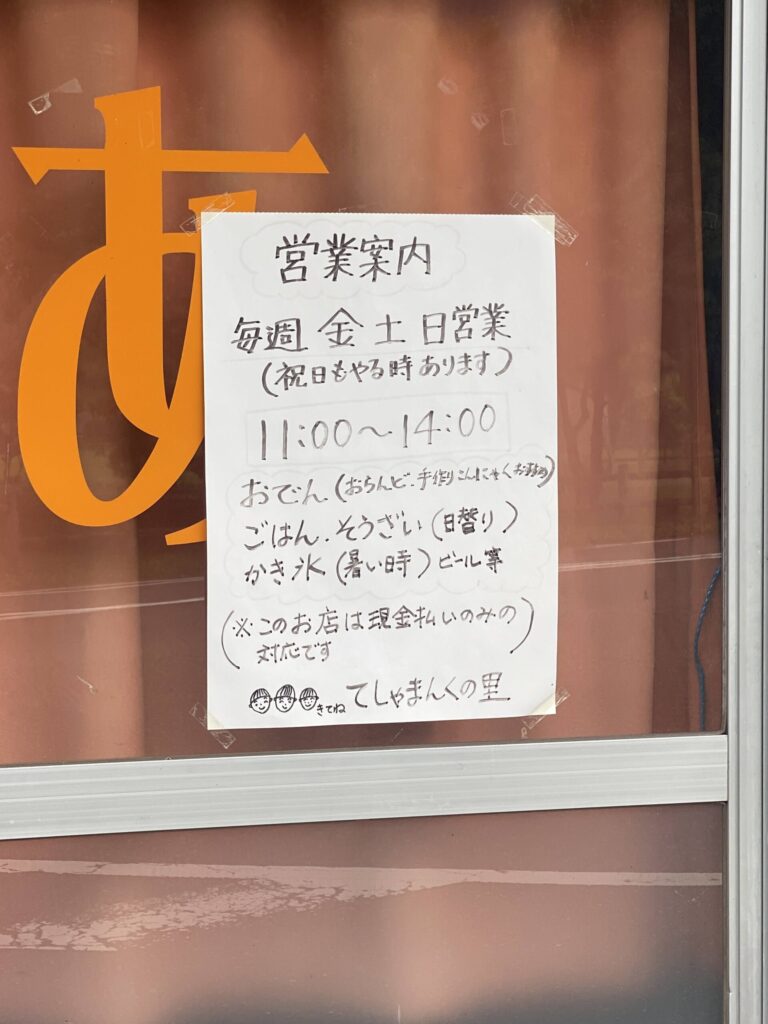 あ
営業案内
毎週 金 土 日営業
(祝日もやる時あります)
11:00〜14:00
おでん (おらんど.手作りこんにゃくおすすめ)
ごはん.そうざい (日替り)
かき氷 (暑い時) ビール等
(※このお店は現金払いのみの
対応です)
きてね てしゃまんくの里